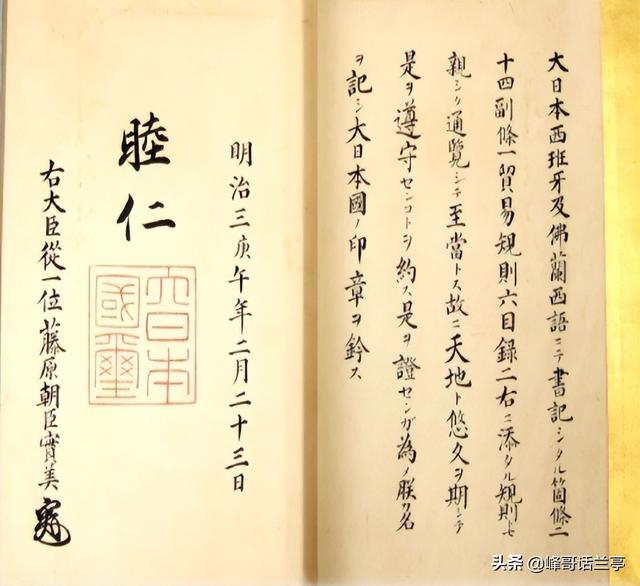 大日本西班牙及佛蘭西語ニテ書記シタル箇條二
十四副條一貿易規則六目錄二右ニ添タル規則七
親シク通覽シテ至當トス故ニ天地ト悠久ヲ期シテ
是ヲ遵守センコトヲ約ス是ヲ證センガ為メ朕カ名
ヲ記シ大日本國ノ印章ヲ鈐ス
明治三庚午年二月二十三日
睦仁
大日本
國璽
右大臣從一位藤原朝臣實美
头条 @峰哥话兰亭